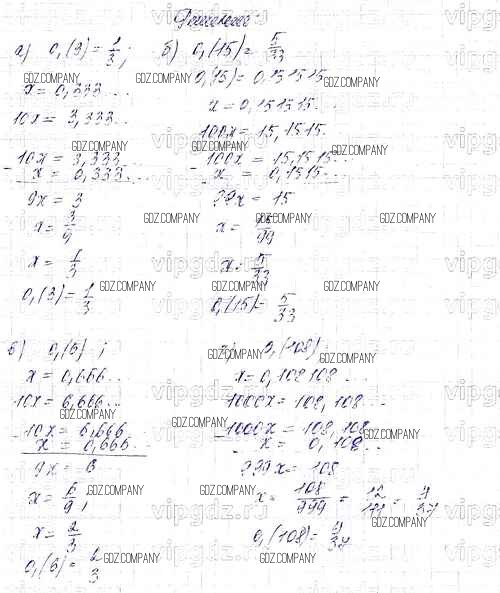 Решение
а) 0,(3) = 1/3;
x = 0,333...
10x = 3,333...
10x = 3,333...
- x = 0,333...
9x = 3
x = 3/9
x = 1/3
0,(3) = 1/3
б) 0,(15) = 5/33
0,(15) = 0,151515
x = 0,151515...
100x = 15,1515...
100x = 15,1515...
- x = 0,1515...
99x = 15
x = 15/99
x = 5/33
0,(15) = 5/33
в) 0,(6);
x = 0,666...
10x = 6,666...
10x = 6,666...
- x = 0,666...
9x = 6
x = 6/9;
x = 2/3
0,(6) = 2/3
0,(108)
x = 0,108108...
1000x = 108,108...
1000x = 108,108...
- x = 0,108...
999x = 108
x = 108/999 = 12/111 = 4/37
0,(108) = 4/37
GDZ.COMPANY
vipgdz.ru